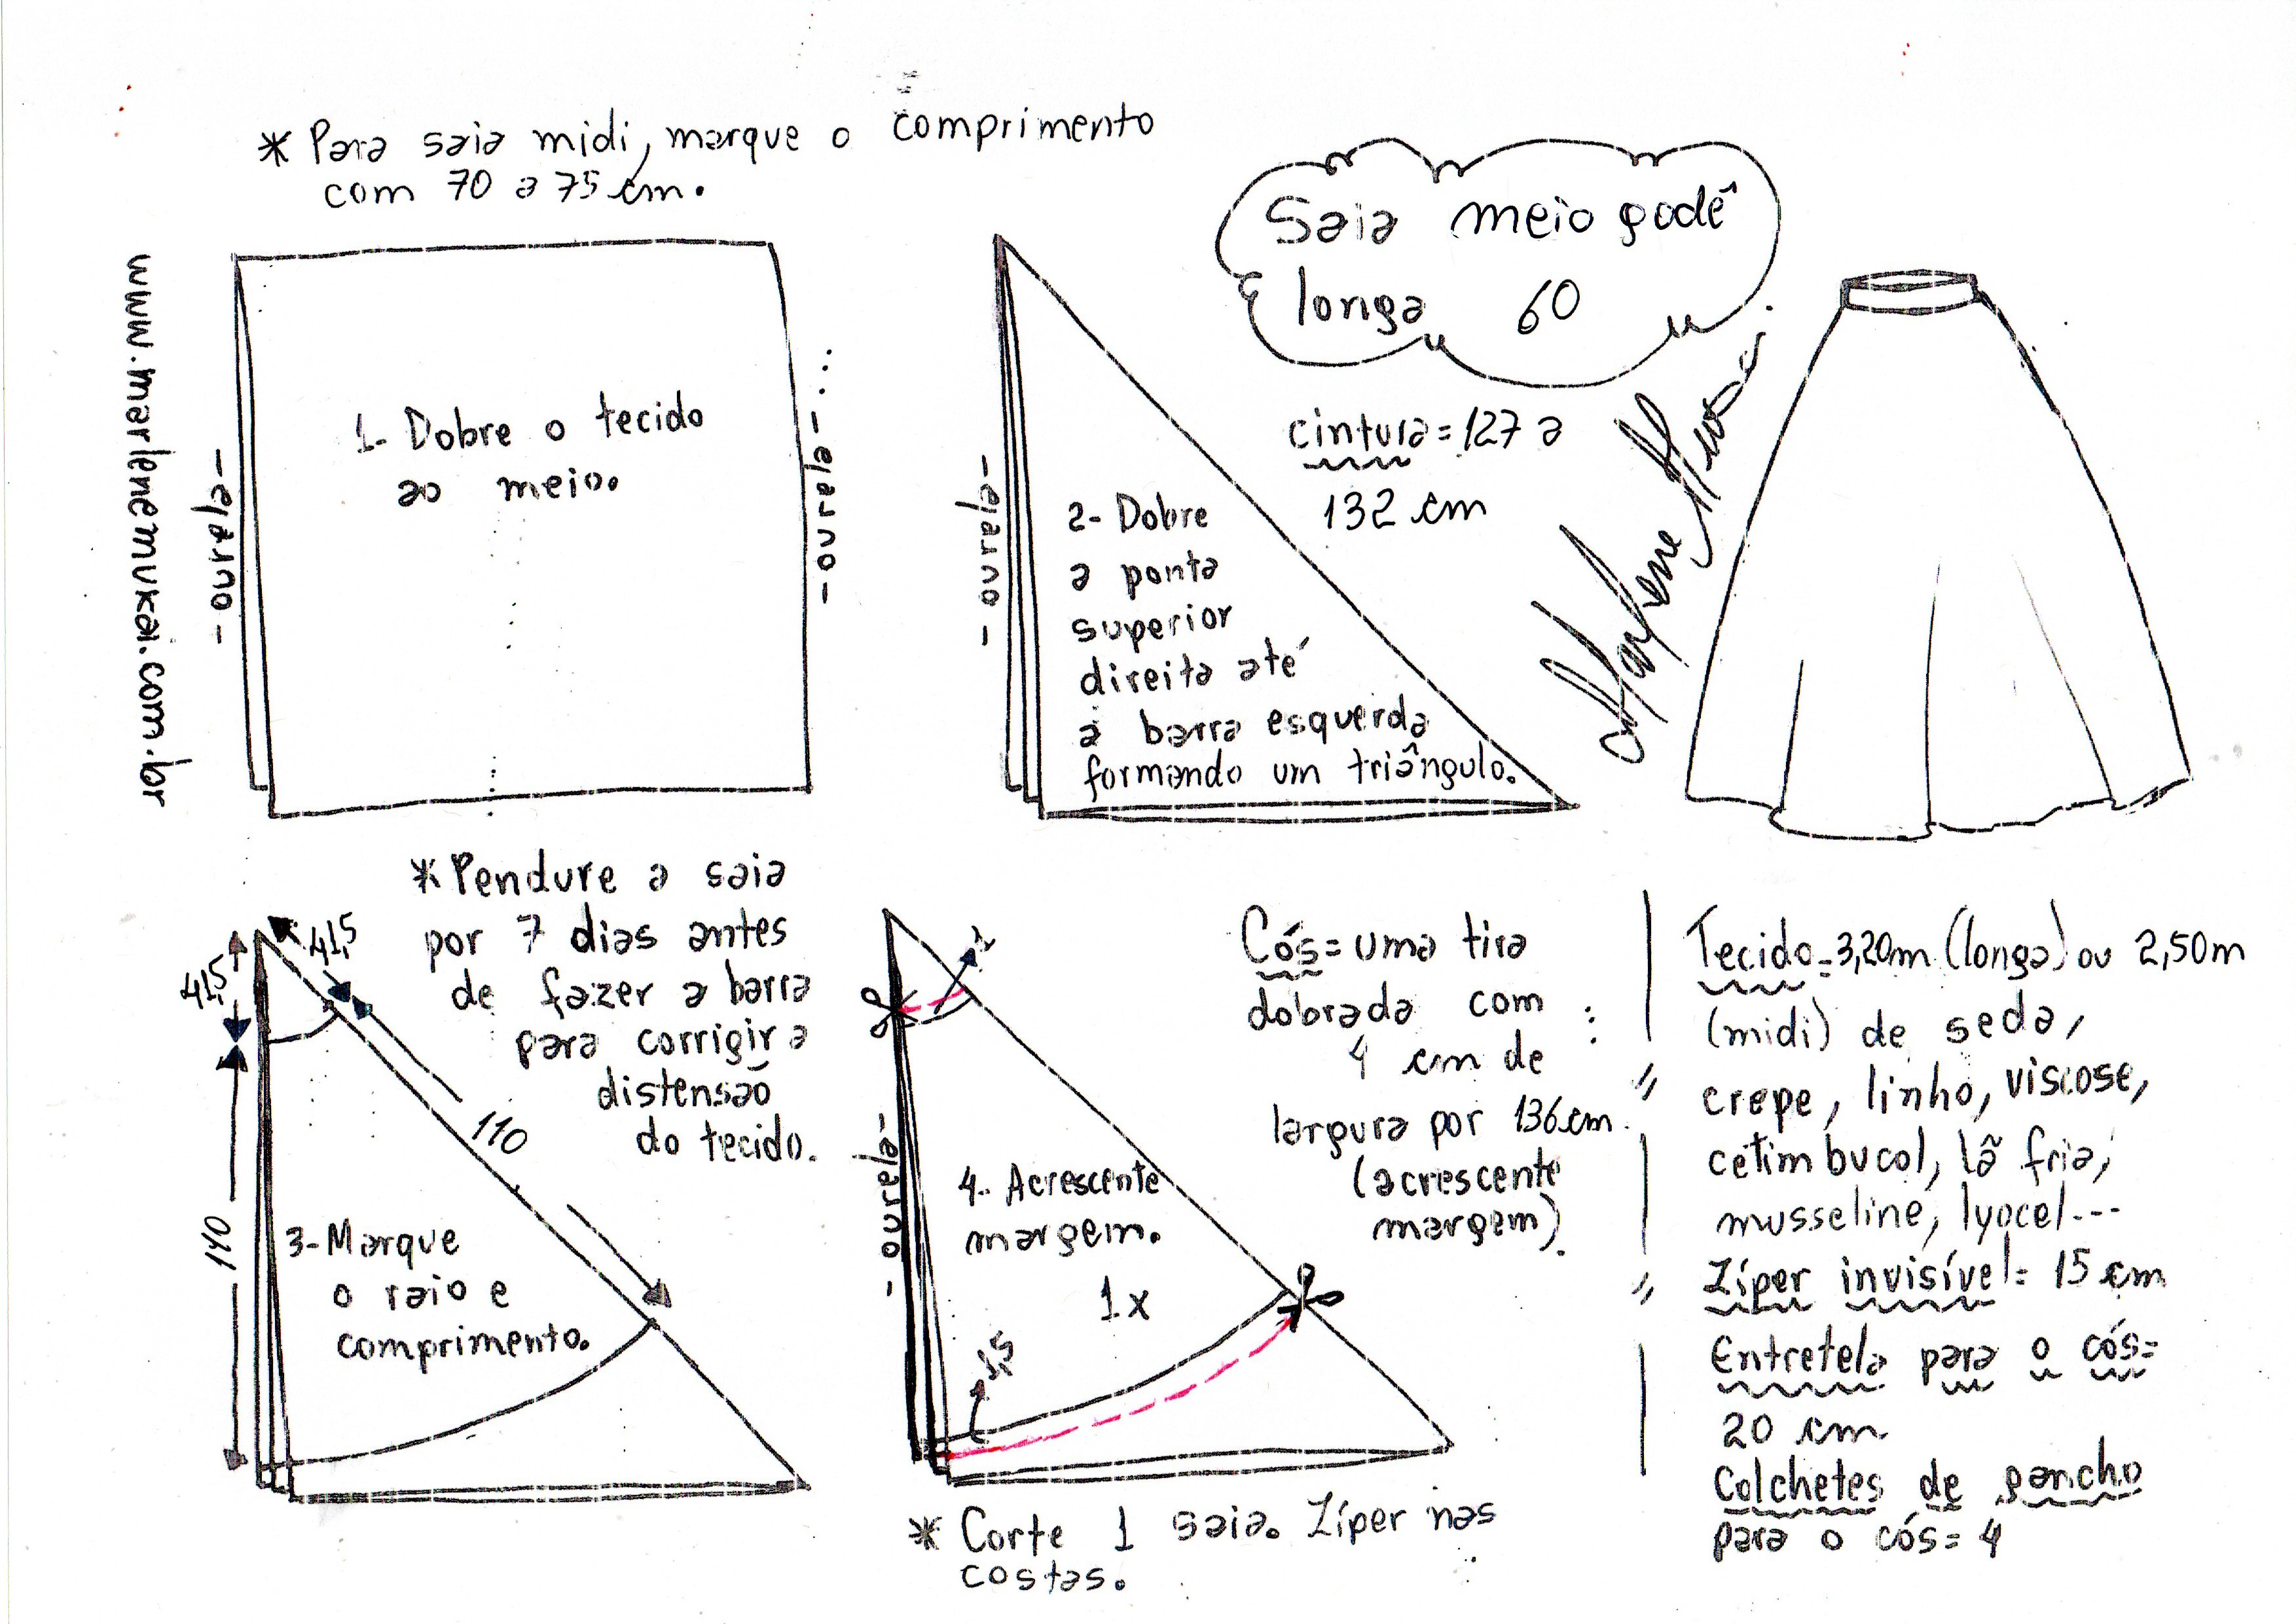 * Para saia midi, marque o comprimento
com 70 a 75 cm.
Saia meio godê
longa 60
www.marlenemukai.com.br
- ourela -
1- Dobre o tecido
ao meio.
- ourela -
- ourela -
2- Dobre
a ponta
superior
direita até
a barra esquerda
formando um triângulo.
cintura = 127 a
132 cm
Marlene Mukai
* Pendure a saia
por 7 dias antes
de fazer a barra
para corrigir a
distensão
do tecido.
41,5
41,5
110
110
3- Marque
o raio e
comprimento.
1
- ourela -
4- Acrescente
margem.
1x
1,5
* Corte 1 saia. Zíper nas
costas.
Cós = uma tira
dobrada com
4 cm de
largura por 136 cm.
(acrescente
margem).
Tecido = 3,20m (longa) ou 2,50m
(midi) de seda,
crepe, linho, viscose,
cetim bucol, lã fria,
musseline, lyocel...
Zíper invisível = 15 cm
Entretela para o cós =
20 cm
Colchetes de gancho
para o cós = 4